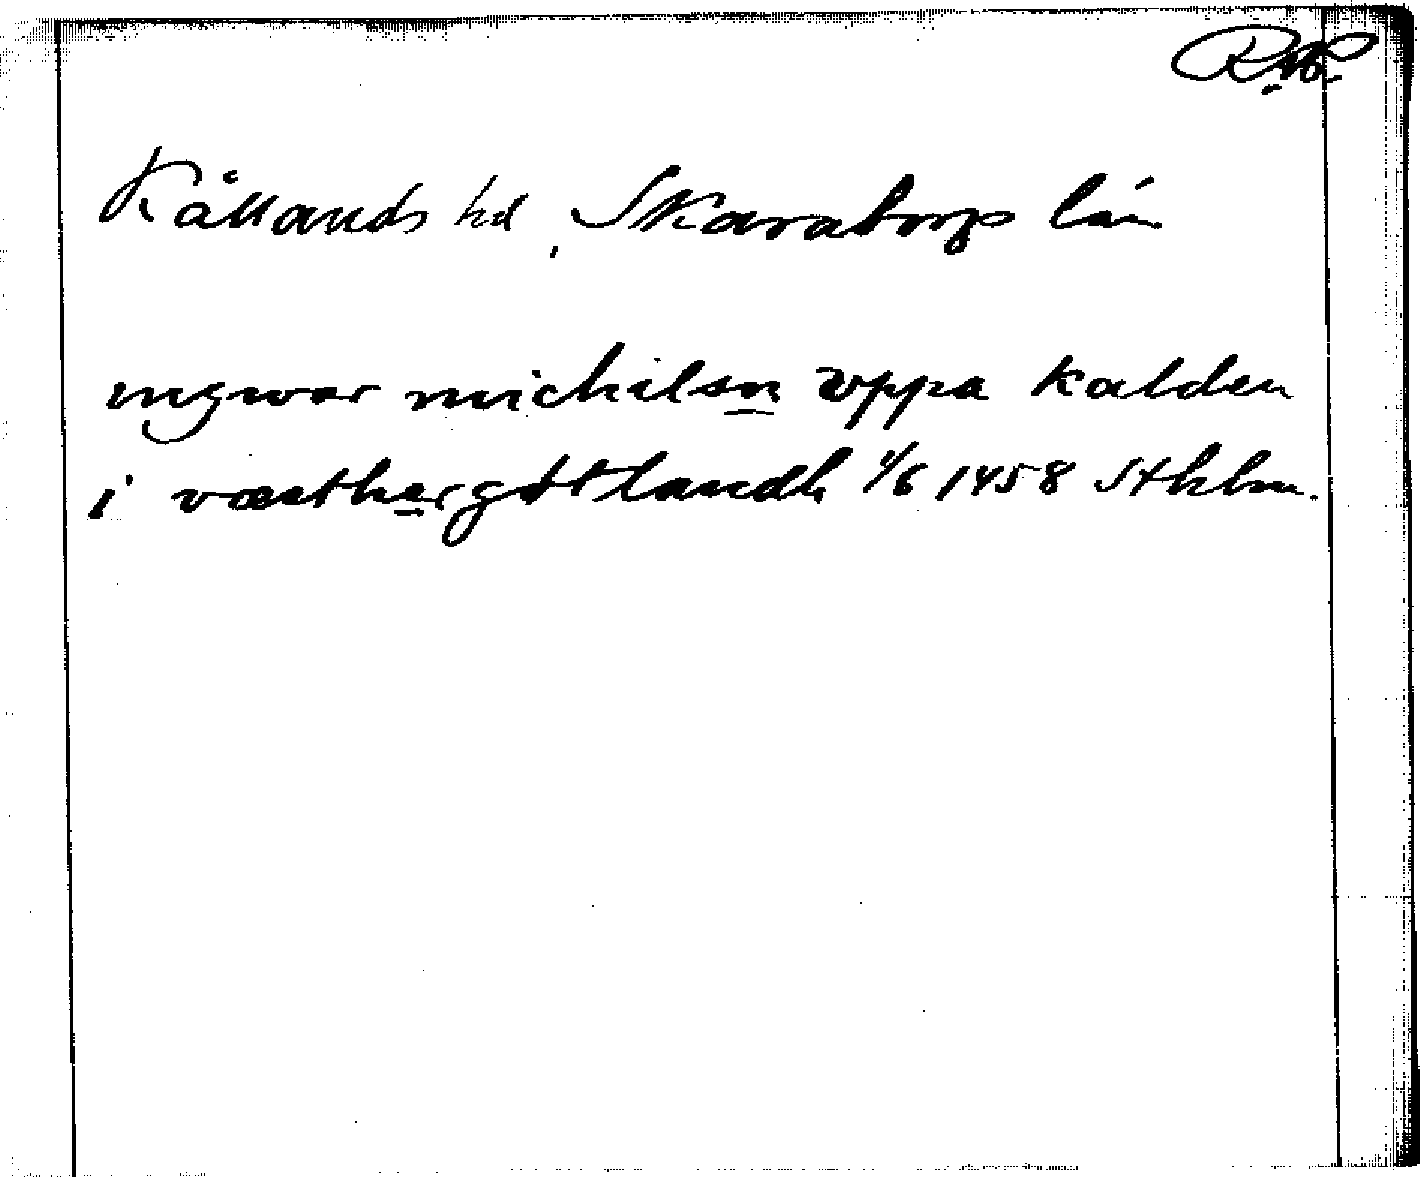 Kållands hd, Skaratorps län
ingwar michilsn vppa kalden
i væsthergøtlandh 1/6 1458 Sthlm.